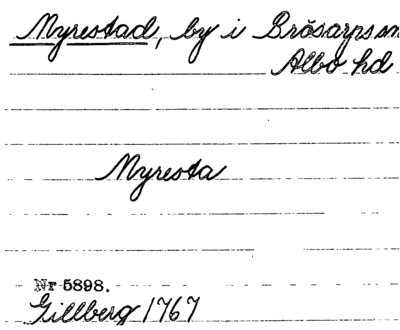 Myrestad, by i Brösarps sn
Albo hd
Myresta
Nr 5898.
Gillberg 1767